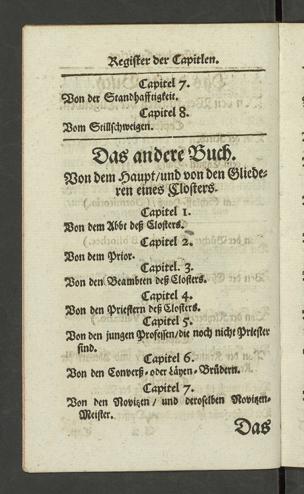 Register der Capitlen.
Capitel 7.
Von der Standhafftigkeit.
Capitel 8.
Vom Stillschweigen.
Das andere Buch.
Von dem Haupt/und von den Gliede-
ren eines Closters.
Capitel 1.
Von dem Abbt deß Closters.
Capitel 2.
Von dem Prior.
Capitel. 3.
Von den Beambten deß Closters.
Capitel 4.
Von den Priestern deß Closters.
Capitel 5.
Von den jungen Professen/die noch nicht Priester
sind.
Capitel 6.
Von den Converß- oder Läyen-Brüdern.
Capitel 7.
Von den Novitzen / und deroselben Novitzen-
Meister.
Das